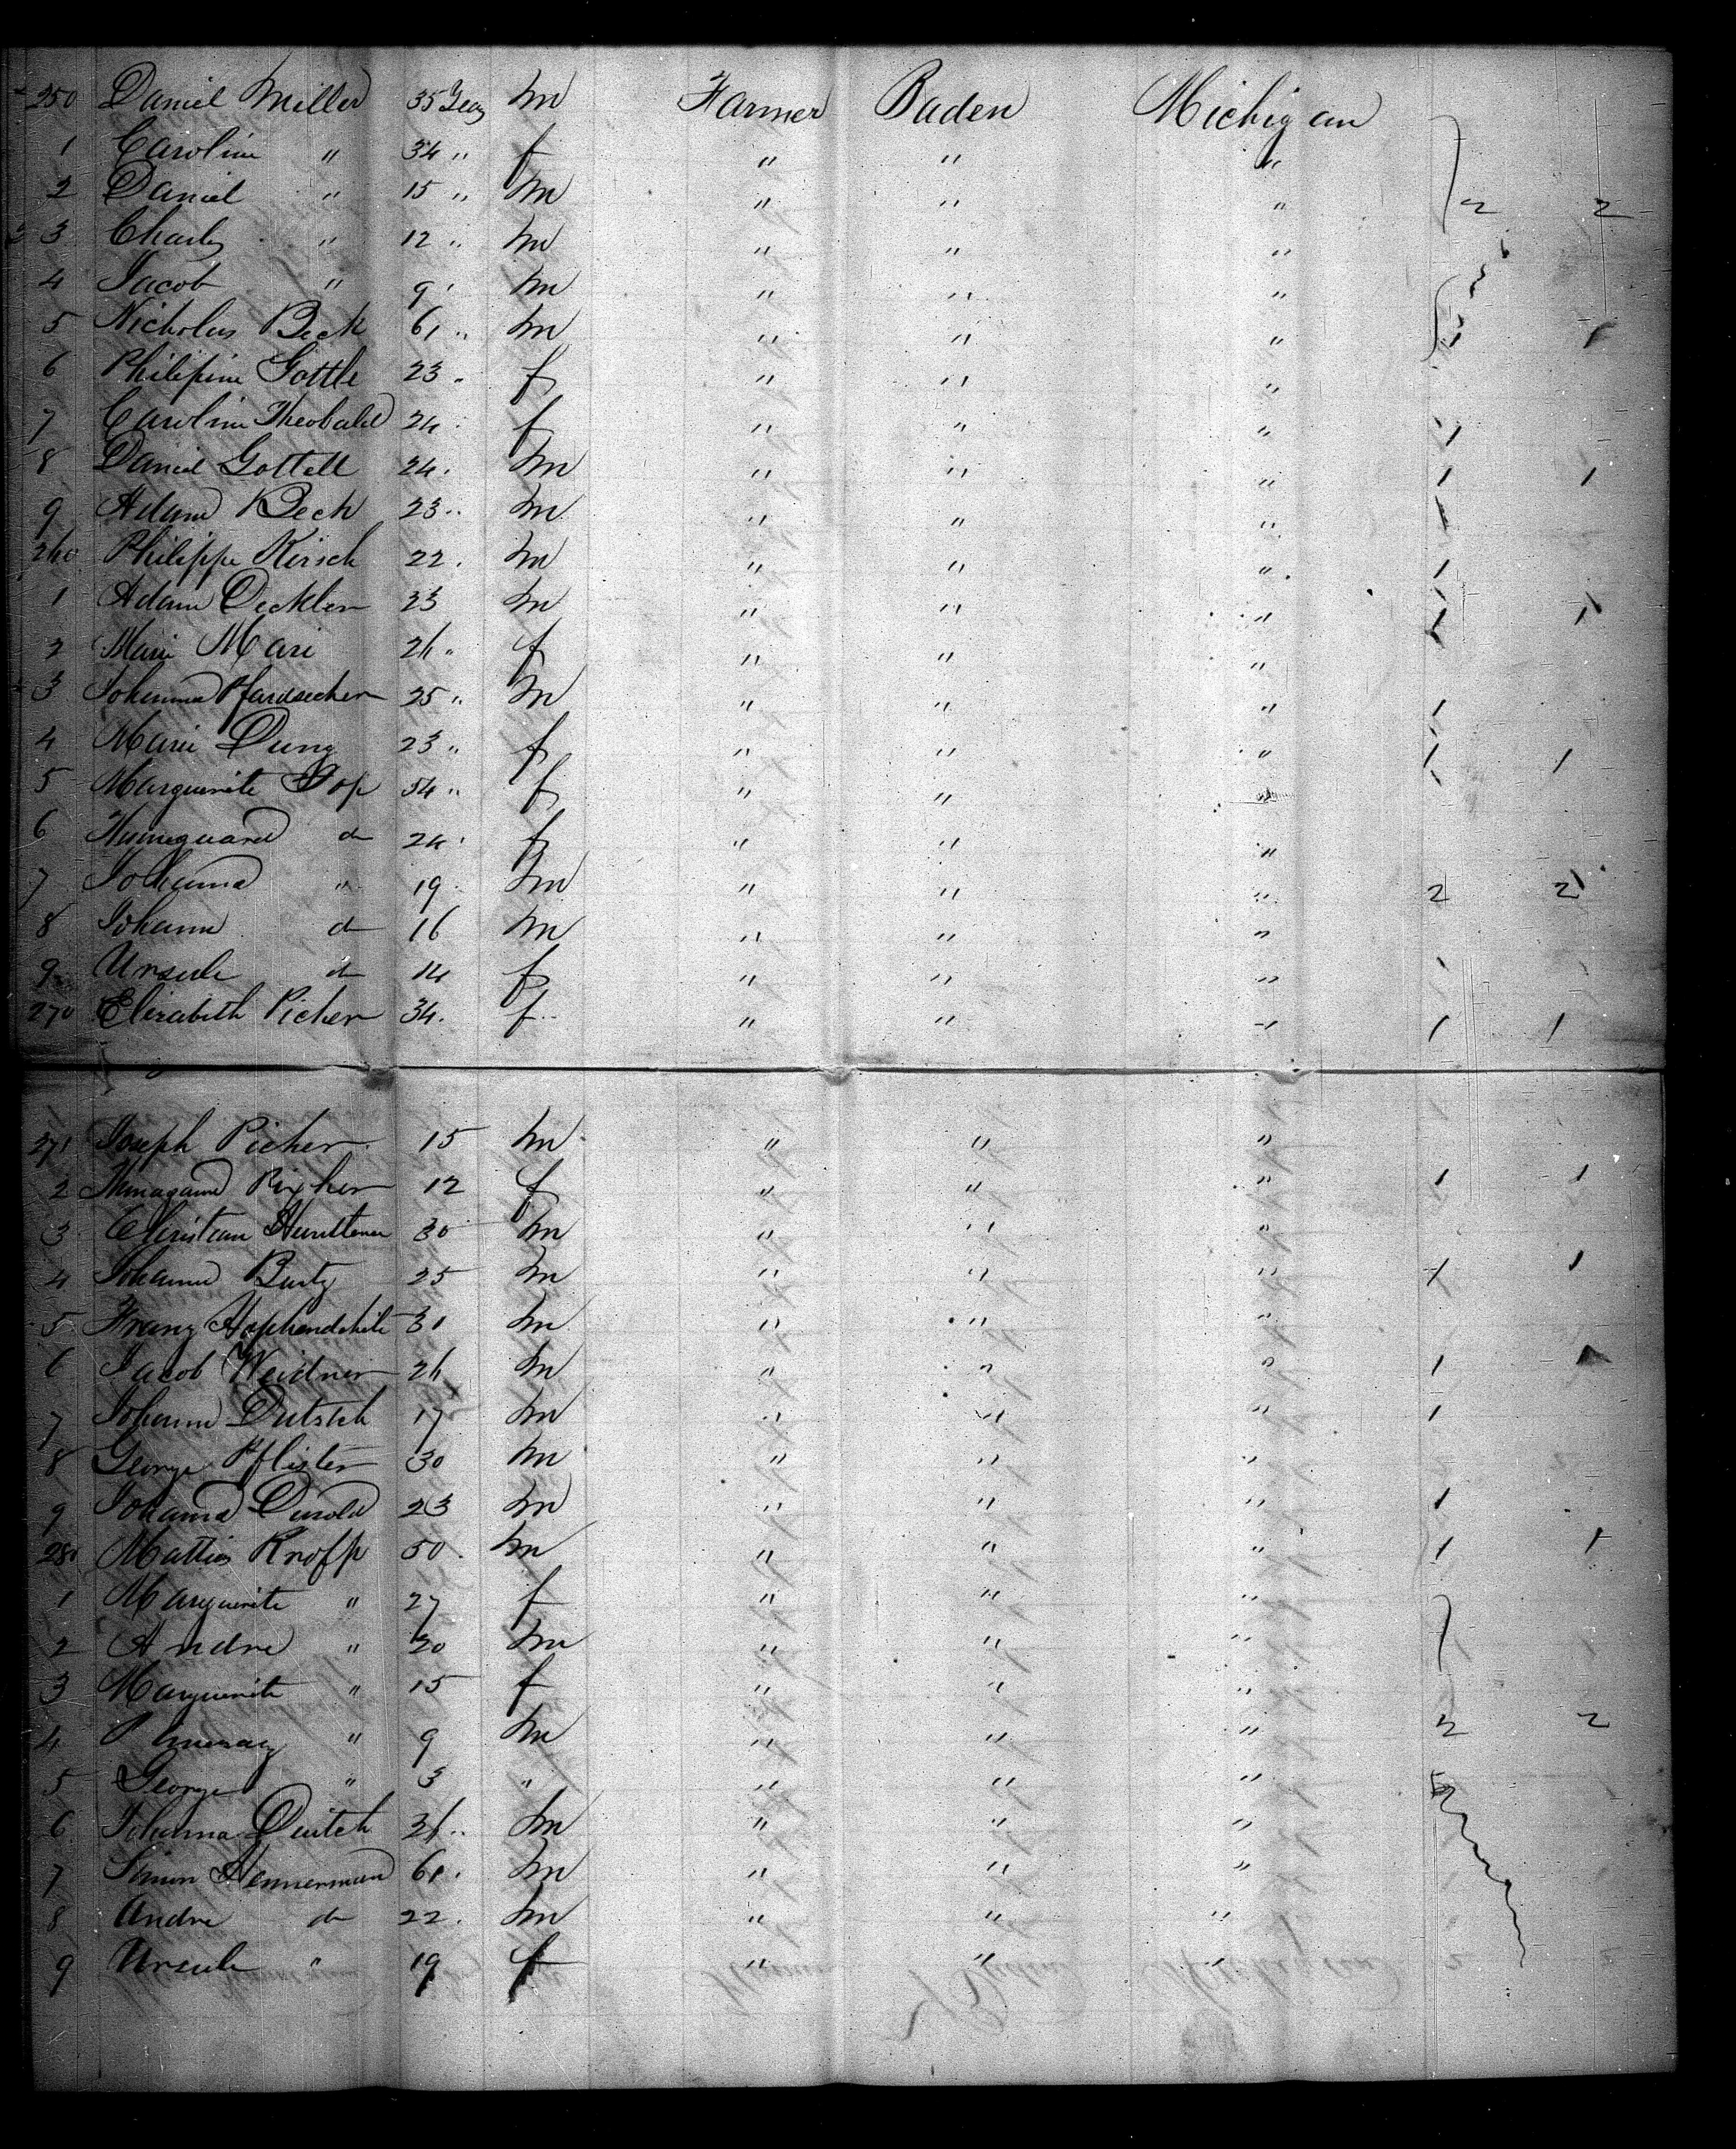 250 Daniel Miller 35 Years m Farmer Baden Michigan
1 Caroline " 34 " f " " "
2 Daniel " 15 " m " " " 2 2
3 Charles " 12 " m " " "
4 Jacob " 9 " m " " "
5 Nicholas Beck 61 " m " " " 1 1
6 Philipine Gottle 23 " f " " "
7 Caroline Theobald 24 " f " " " 1
8 Daniel Gottell 24 " m " " " 1 1
9 Adam Beck 23 " m " " "
260 Philippe Kirsch 22 " m " " " 1
1 Adam Deckler 23 m " " " 1 1
2 Marie Mari 26 " f " " "
3 Johanna 25 " m " " " 1
4 Marie Dung 23 " f " " " 1 1
5 Marguerite Jop 54 " f " " "
6 do 24 " f " " "
7 Johanna " 19 m " " " 2 2
8 Johann do 16 m " " "
9 Ursule do 14 f " " "
270 Elizabeth Picher 34 f " " " 1 1
271 Joseph Picher 15 m " " "
2 Picher 12 f " " " 1 1
3 Christian 30 m " " "
4 Johanna Burtz 25 m " " " 1 1
5 Franz 31 m " " "
6 Jacob Weidner 26 m " " " 1
7 Johann Dutsch 17 m " " " 1
8 George Pflister 30 m " " "
9 Johanna 23 m " " " 1
280 Mattis Knopp 50 m " " " 1 1
1 Marguerite " 27 f " " "
2 Andre " 20 m " " "
3 Marguerite " 15 f " " "
4 " 9 m " " " 2 2
5 George " 3 " " " "
6 Johanna Deutch 36 " m " " "
7 Simon Hennerman 61 m " " "
8 Andre do 22 m " " "
9 Ursule " 19 f " " "